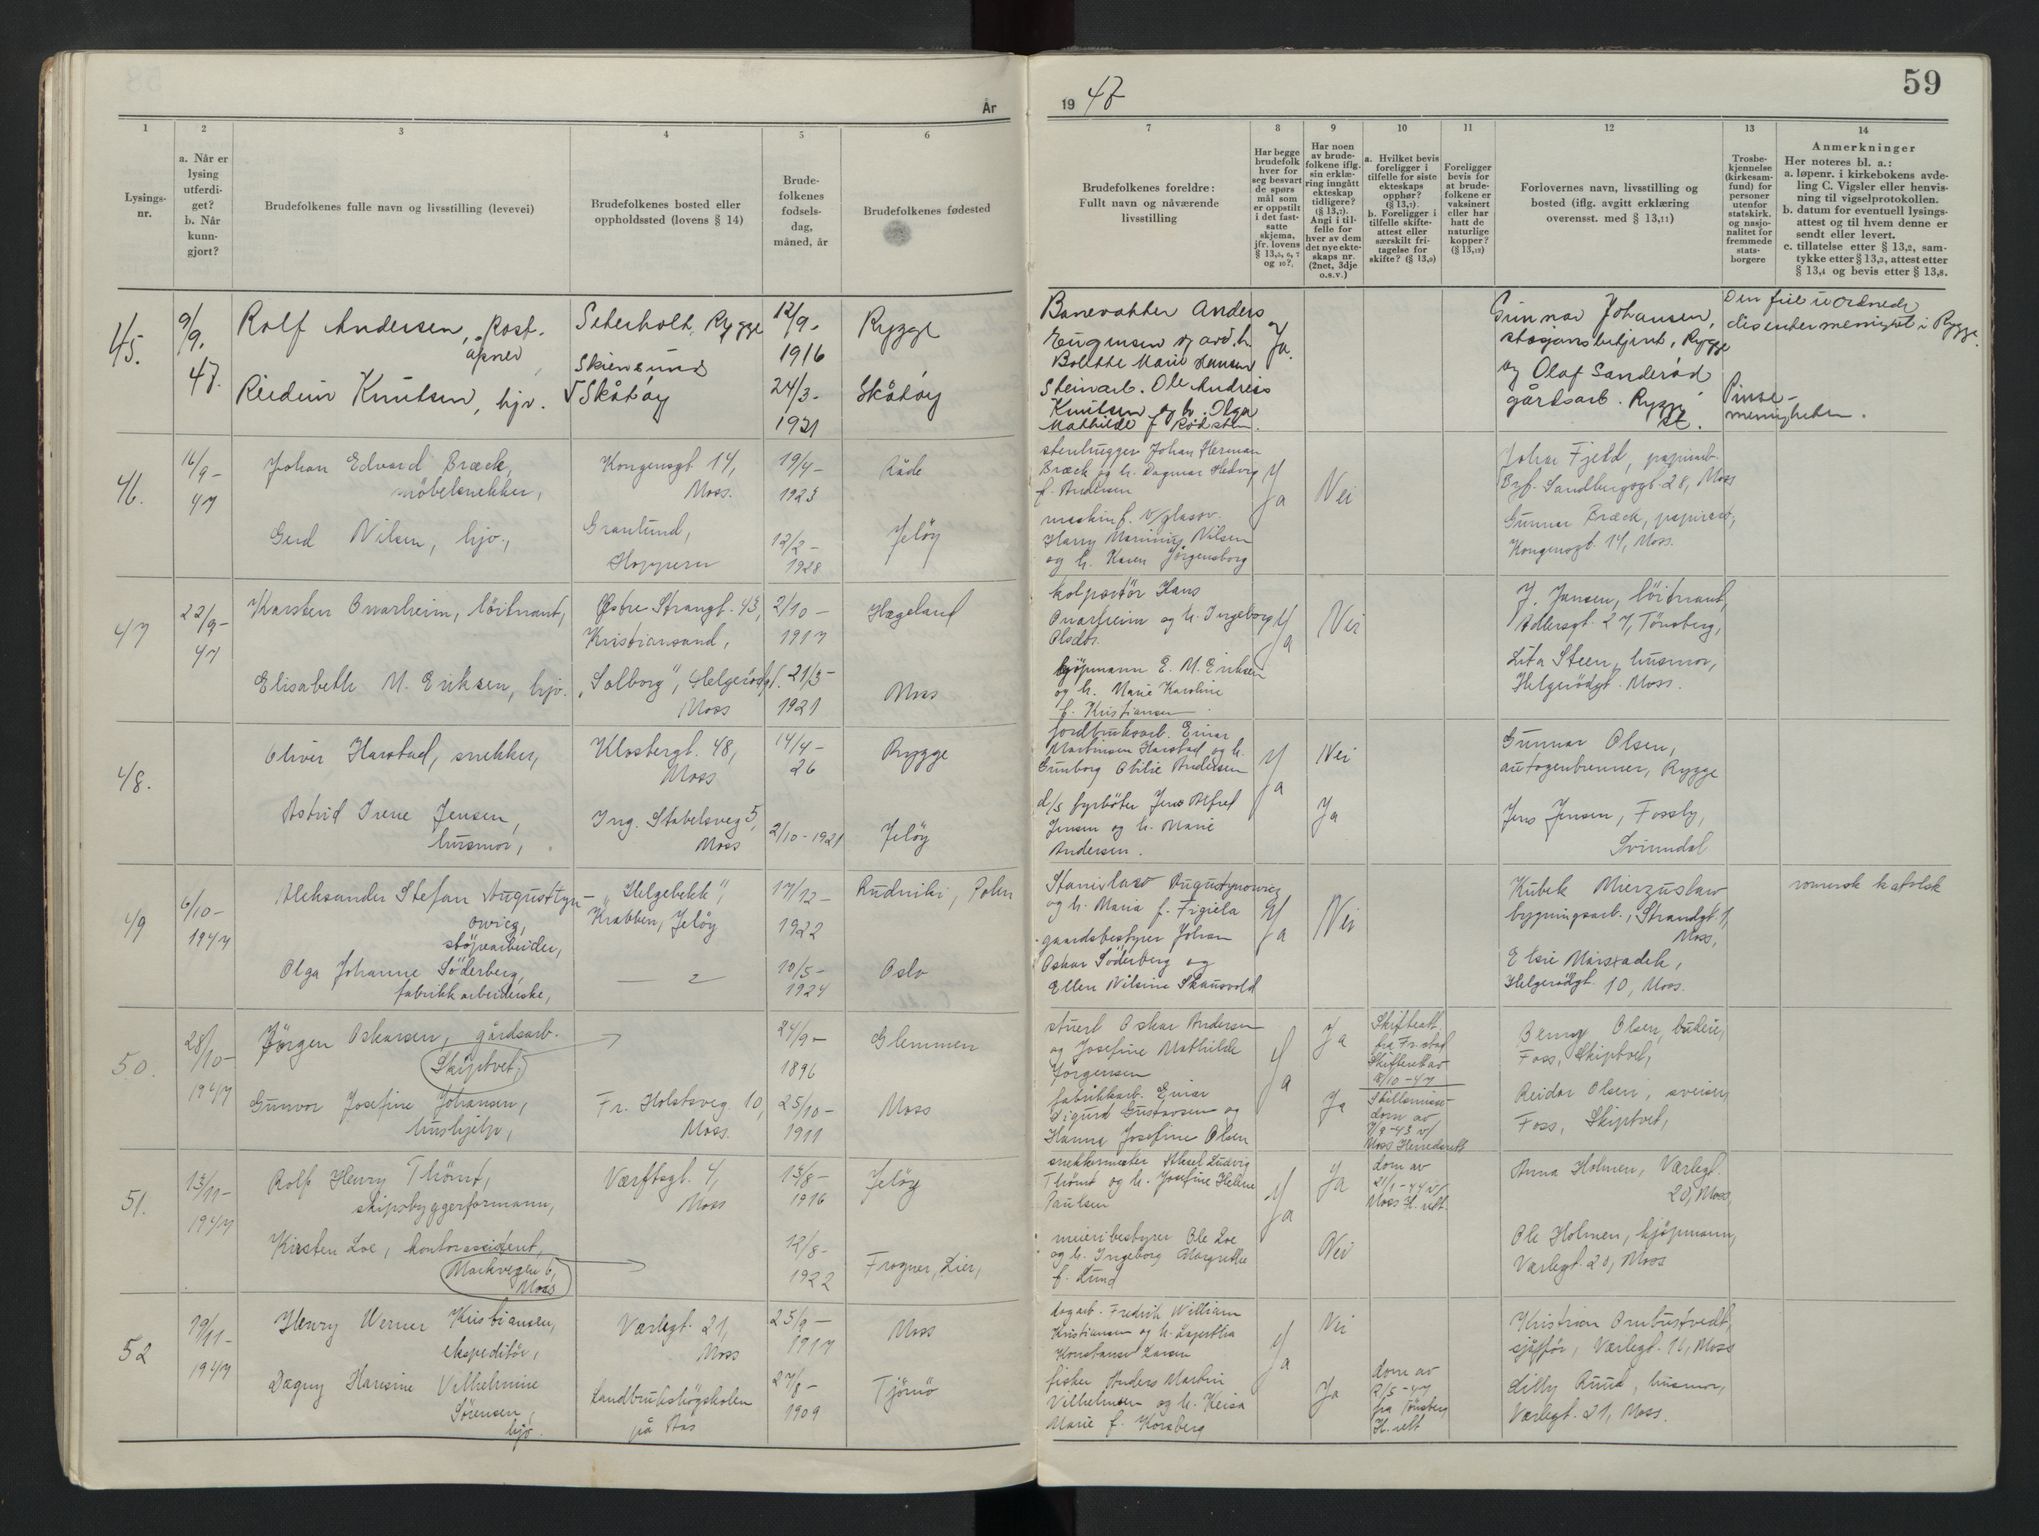 59
År
19 47
1
2
3
4
5
6
7
8
9
10
11
12
13
14
Lysings-
nr.
a. Når er
lysing
utferdi-
get?
b. Når
kunn-
gjort?
Brudefolkenes fulle navn og livsstilling (levevei)
Brudefolkenes bosted eller
oppholdssted (lovens § 14)
Brude-
folkenes
fødsels-
dag,
måned, år
Brudefolkenes fødested
Brudefolkenes foreldre:
Fullt navn og nåværende
livsstilling
Har begge
brudefolk
hver for
seg besvart
de spørs
mål som
er oppstilt
i det fast-
satte
skjema,
jfr. lovens
§ 13,5, 6, 7
og 10?.
Har noen
av brude-
folkene iflg.
sin erklæ-
ring inngått
ekteskap
tidligere?
(§ 13,7).
Angi i til-
felle for
hver av dem
det nye ekte-
skaps nr.
(2net, 3dje
o.s.v.)
a. Hvilket bevis
foreligger i
tilfelle for siste
ekteskaps
opphør?
(§ 13,7)
b. Foreligger i
tilfelle skifte-
attest eller
særskilt fri-
tagelse for
skifte? (§ 13,9)
Foreligger
bevis for
at brude-
folkene er
vaksinert
eller har
hatt de
naturlige
kopper?
(§ 13,12)
Forlovernes navn, livsstilling og
bosted (iflg. avgitt erklæring
overensst. med § 13,11)
Trosbe-
kjennelse
(kirkesam-
fund) for
personer
utenfor
statskirk.
og nasjo-
nalitet for
fremmede
stats-
borgere
Anmerkninger
Her noteres bl. a.:
a. løpenr. i kirkebokens avde-
ling C. Vigsler eller henvis-
ning til vigselprotokollen.
b. datum for eventuell lysings-
attest og til hvem denne er
sendt eller levert.
c. tillatelse etter § 13,2, sam-
tykke etter § 13,3, attest etter
§ 13,4 og bevis etter § 13,8.
45.
9/9.
47.
Rolf Andersen, Post-
åpner,
Knutsen, hjv.
Seterholt, Rygge
Skåtøy
12/9-
1916
24/3-
1921
Rygge
Skåtøy
Banevokter Anders
Bolette Marie Hansen
Steinarb. Ole Andreas
Knutsen og h. Olga
Mathilde f.
Ja.
Gunnar Johansen,
stasjonsbetjent, Rygge
og Olaf Sanderød
gårdsarb. Rygge
Den frie
i Rygge.
Pinse-
menigheten.
46.
16/9-
47
Johan Edvard Bræck,
møbelsnekker,
Gerd Nilsen, hjv.,
Kongensgt 14,
Moss.
Granlund,
Hoppern
19/4-
1923
12/2-
1928
Råde
Jeløy
stenhugger Johan Herman
Bræck og h. Dagmar Hedvig
f. Andersen
maskinf. v/glassv.
Harry Marinius Nilsen
og h. Karen Jørgensborg
Ja
Nei
Johan Fjeld, papirarb.
Brf. Sandbergsgt. 28, Moss
Gunnar Bræck, papirarb,
Kongensgt. 14, Moss.
47
22/9-
47
Karsten Ovarheim, løitnant,
Elisabeth M. Eriksen, hjv.
Østre Strandgt. 43,
Kristiansand,
"Solborg", Helgerødgt.
Moss
2/10-
1917
21/3-
1921
Hægeland
Moss
kolportør Hans
Ovarheim og h. Ingeborg
Olsdtr.
kjøpmann E. M. Eriksen
og h. Marie Karoline
f. Kristiansen
Ja
Nei
J. Jansen, löitnant,
Adlersgt. 27, Tønsberg,
Lita Steen, husmor,
Helgerødgt. Moss.
48.
Oliver Harstad, snekker,
Astrid Irene Jensen,
husmor,
Klostergt. 48,
Moss
Ing. Stabelsveg 5,
Moss
14/4-
26
2/10-1921
Rygge
Jeløy
jordbruksarb. Einar
Martinsen Harstad og h.
Gunborg Otilie Andersen
d/s fyrbøter Jens Alfred
Jensen og h. Marie
Andersen.
Ja
Nei
Ja
Gunnar Olsen,
autogenbrenner, Rygge
Jens Jensen, Fossby,
Svinndal
49
6/10-
1947
Aleksander Stefan Augustyn-
owicz,
støperarbeider,
Olga Johanne Søderberg,
fabrikkarbeiderske,
"Helgebekk",
Krabben, Jeløy
— " —
17/12-
1922
10/5-
1924
Rudniki, Polen
Oslo
Stanislaw Augustynowicz
og h. Maria f. Figiela
gaardsbestyrer Johan
Oskar Söderberg og
Ellen Nilsine Skausvold
Ja
Nei
Kubek Mierzuslaw
bygningsarb., Strandgt. 1,
Moss,
Elsie Marszadek,
Helgerødgt. 10, Moss.
romersk katolsk
50.
28/10-
1947
Jørgen Oskarsen, gårdsarb.
Skiptvet,
Gunvor Josefine Johansen,
hushjelp,
Fr. Holstsveg. 10,
Moss.
24/9-
1896
25/10-
1911
Glemmen
Moss
stuert Oskar Andersen
og Josefine Mathilde
Jørgensen
fabrikkarb. Einar
Sigurd Gustavsen og
Hanna Josefine Olsen
Ja
Ja
Ja
Skifteatt.
fra Fr.stad
Skifterett av
18/10-47
Skilsmisse-
dom av
7/9-43 v/
Moss Herredsrett
Benny Olsen, budeie,
Foss, Skiptvet,
Reidar Olsen, sveiser,
Foss, Skiptvet,
51.
13/11-
1947
Rolf Henry Thømt,
skipsbyggerformann,
Kirsten Loe, kontorassistent,
Markvegen 6,
Moss
Værftsgt. 4,
Moss
13/8-
1916
12/8-
1922
Jeløy
Frogner, Lier,
snekkermester Aksel Ludvig
Thømt og h. Josefine Helene
Paulsen
meieribestyrer Ole Loe
og h. Ingeborg Margrethe
f. Lund
Ja
Ja
Nei
dom av
21/1-44 v/
Moss H.rett.
Anna Holmen, Værlegt.
20, Moss,
Ole Holmen, kjøpmann,
Værlegt. 20, Moss
52
19/11-
1947
Henry Werner Kristiansen,
ekspeditør,
Dagny Hansine Vilhelmine
Sørensen,
hjv.
Værlegt. 21,
Moss
Landbrukshøgskolen
på Aas
25/9-
1917
27/8-
1909
Moss
Tjømø
dagarb. Fredrik William
Kristiansen og h. Lagertha
Konstanse Larsen
fisker Anders Martin
Vilhelmsen og h. Keisa
Marie f. Korsberg
Ja
Nei
Ja
dom av
2/5-47
fra Tønsberg
H.rett
Kristian Ombustvedt,
sjåffør, Værlegt. 11, Moss
Lilly Ruud, husmor,
Værlegt. 21, Moss.